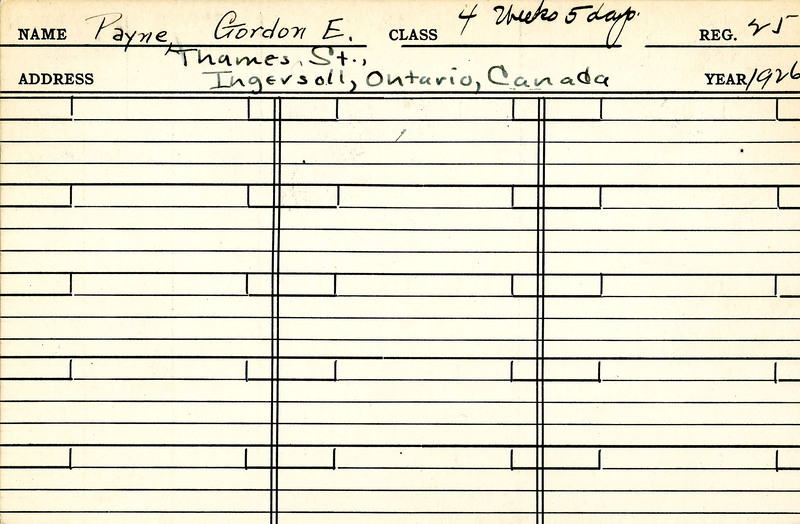 NAME Payne, Gordon E. CLASS 4 Weeks 5 days. REG. 25
Thames St.,
ADDRESS Ingersoll, Ontario, Canada YEAR 1926